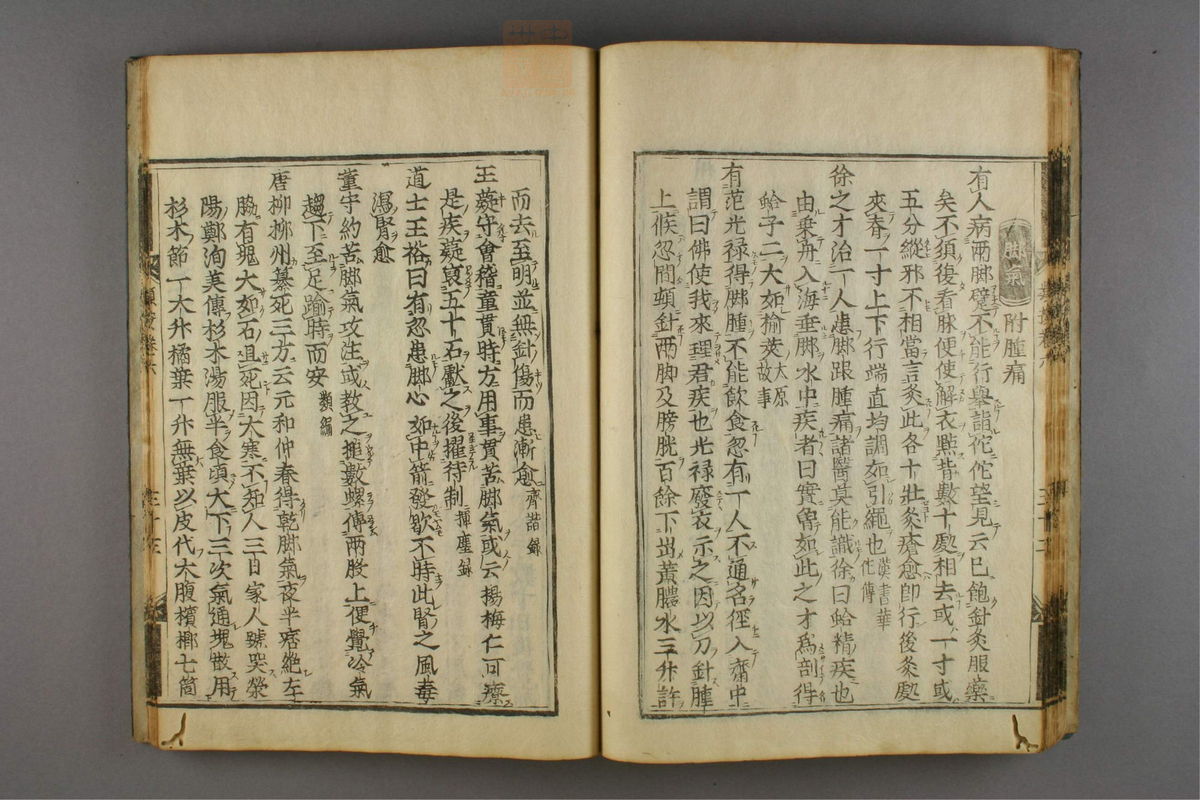 脚氣 附腫痛
有人病兩脚躄不能行轝詣佗佗望見云已飽針灸服藥
矣不須復看脉便使解衣㸃背數十處相去或一寸或
五分縱邪不相當言灸此各十壯灸瘡愈即行後灸處
夾脊一寸上下行端直均調如引繩也 漢書華佗傳
徐之才治一人患脚跟腫痛諸醫莫能識徐曰蛤精疾也
由乗舟入海垂脚水中疾者曰實曽如此之才爲剖得
蛤子二大如榆莢 太原故事
有范光禄得脚腫不能飲食忽有一人不通名徑入齋中
謂曰佛使我來理君疾也光禄廢衣示之因以刀針腫
上倐忽間頓針兩脚及膀胱百餘下出黃膿水三升許
而去至明並無針傷而患漸愈 齊諧録
王蘶守會稽童貫時方用事貫苦脚氣或云楊梅仁可療
是疾蘶裒五十石獻之後擢待制 揮塵録
道士王裕曰有忍患脚心如中箭發歇不時此腎之風毒
瀉腎愈
董守約苦脚氣攻注或教之搥數螺傅兩股上便覺冷氣
趨下至足踰時而安 類編
唐柳柳州纂死三方云元和仲春得乾脚氣夜半痞絶左
脇有塊大如石且死因大寒不知人三日家人號哭滎
陽鄭洵美傳杉木湯服半食頃大下三次氣通塊散用
杉木節一大升橘葉一升無葉以皮代大腹檳榔七箇